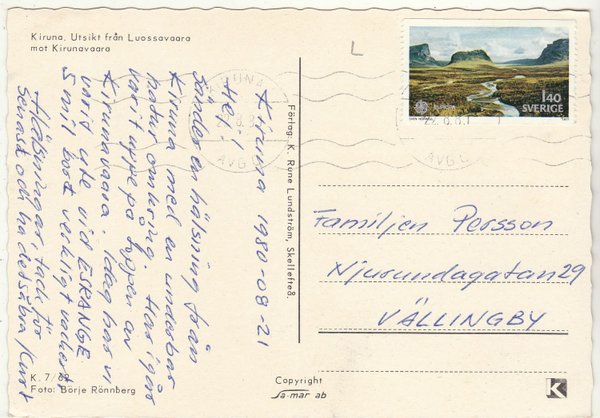 Kiruna. Utsikt från Luossavaara
mot Kirunavaara
L
KIRUNA
AVG
22.8.8
AVG
EUROPA
1.40
SVERIGE
Kiruna 1980-08-21
Hej!
Sänder en hälsning från
Kiruna med en underbar
natur omkring. Har igår
varit uppe på toppen av
Kirunavaara. Idag har vi
varit ute vid ESRANGE
5 mil bort verkligt vackert
Hälsningar, tack för
senast och ha det så bra / Kurt
Förlag: K. Rune Lundström, Skellefteå.
Familjen Persson
Njurundagatan 29
VÄLLINGBY
K. 7/69
Foto: Börje Rönnberg
Copyright
Sa-mar ab
K